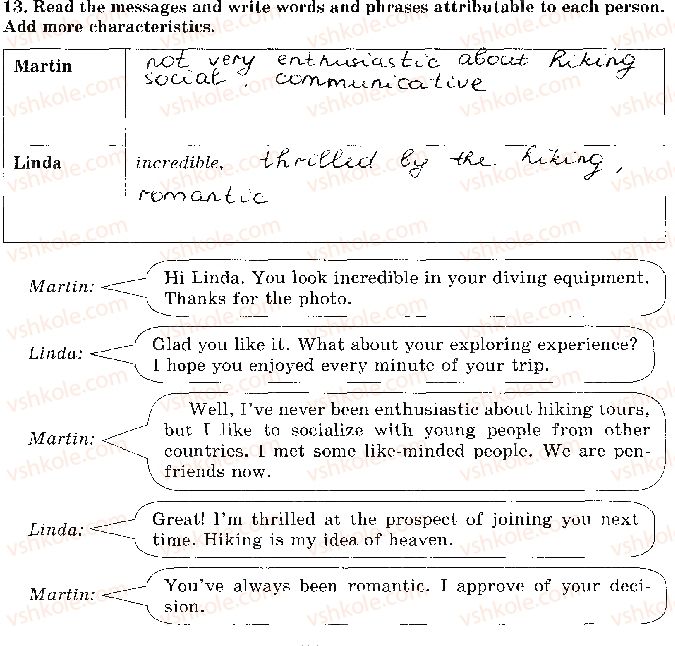 13. Read the messages and write words and phrases attributable to each person.
Add more characteristics.
Martin not very enthusiastic about hiking
social, communicative
Linda incredible, thrilled by the hiking,
romantic
Martin: Hi Linda. You look incredible in your diving equipment.
Thanks for the photo.
Linda: Glad you like it. What about your exploring experience?
I hope you enjoyed every minute of your trip.
Well, I've never been enthusiastic about hiking tours,
but I like to socialize with young people from other
Martin: countries. I met some like-minded people. We are pen-
friends now.
Linda: Great! I'm thrilled at the prospect of joining you next
time. Hiking is my idea of heaven.
Martin: You've always been romantic. I approve of your deci-
sion.
vshkole.com